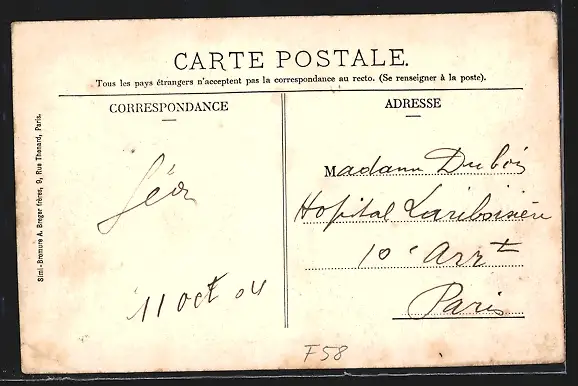 CARTE POSTALE.
Tous les pays étrangers n'acceptent pas la correspondance au recto. (Se renseigner à la poste).
CORRESPONDANCE
ADRESSE
Simi-Bromure A. Breger frères, 9, Rue Thenard, Paris.
Léon
11 oct 04
Madame Dubois
Hopital Lariboisière
10e Arrt
Paris
F58